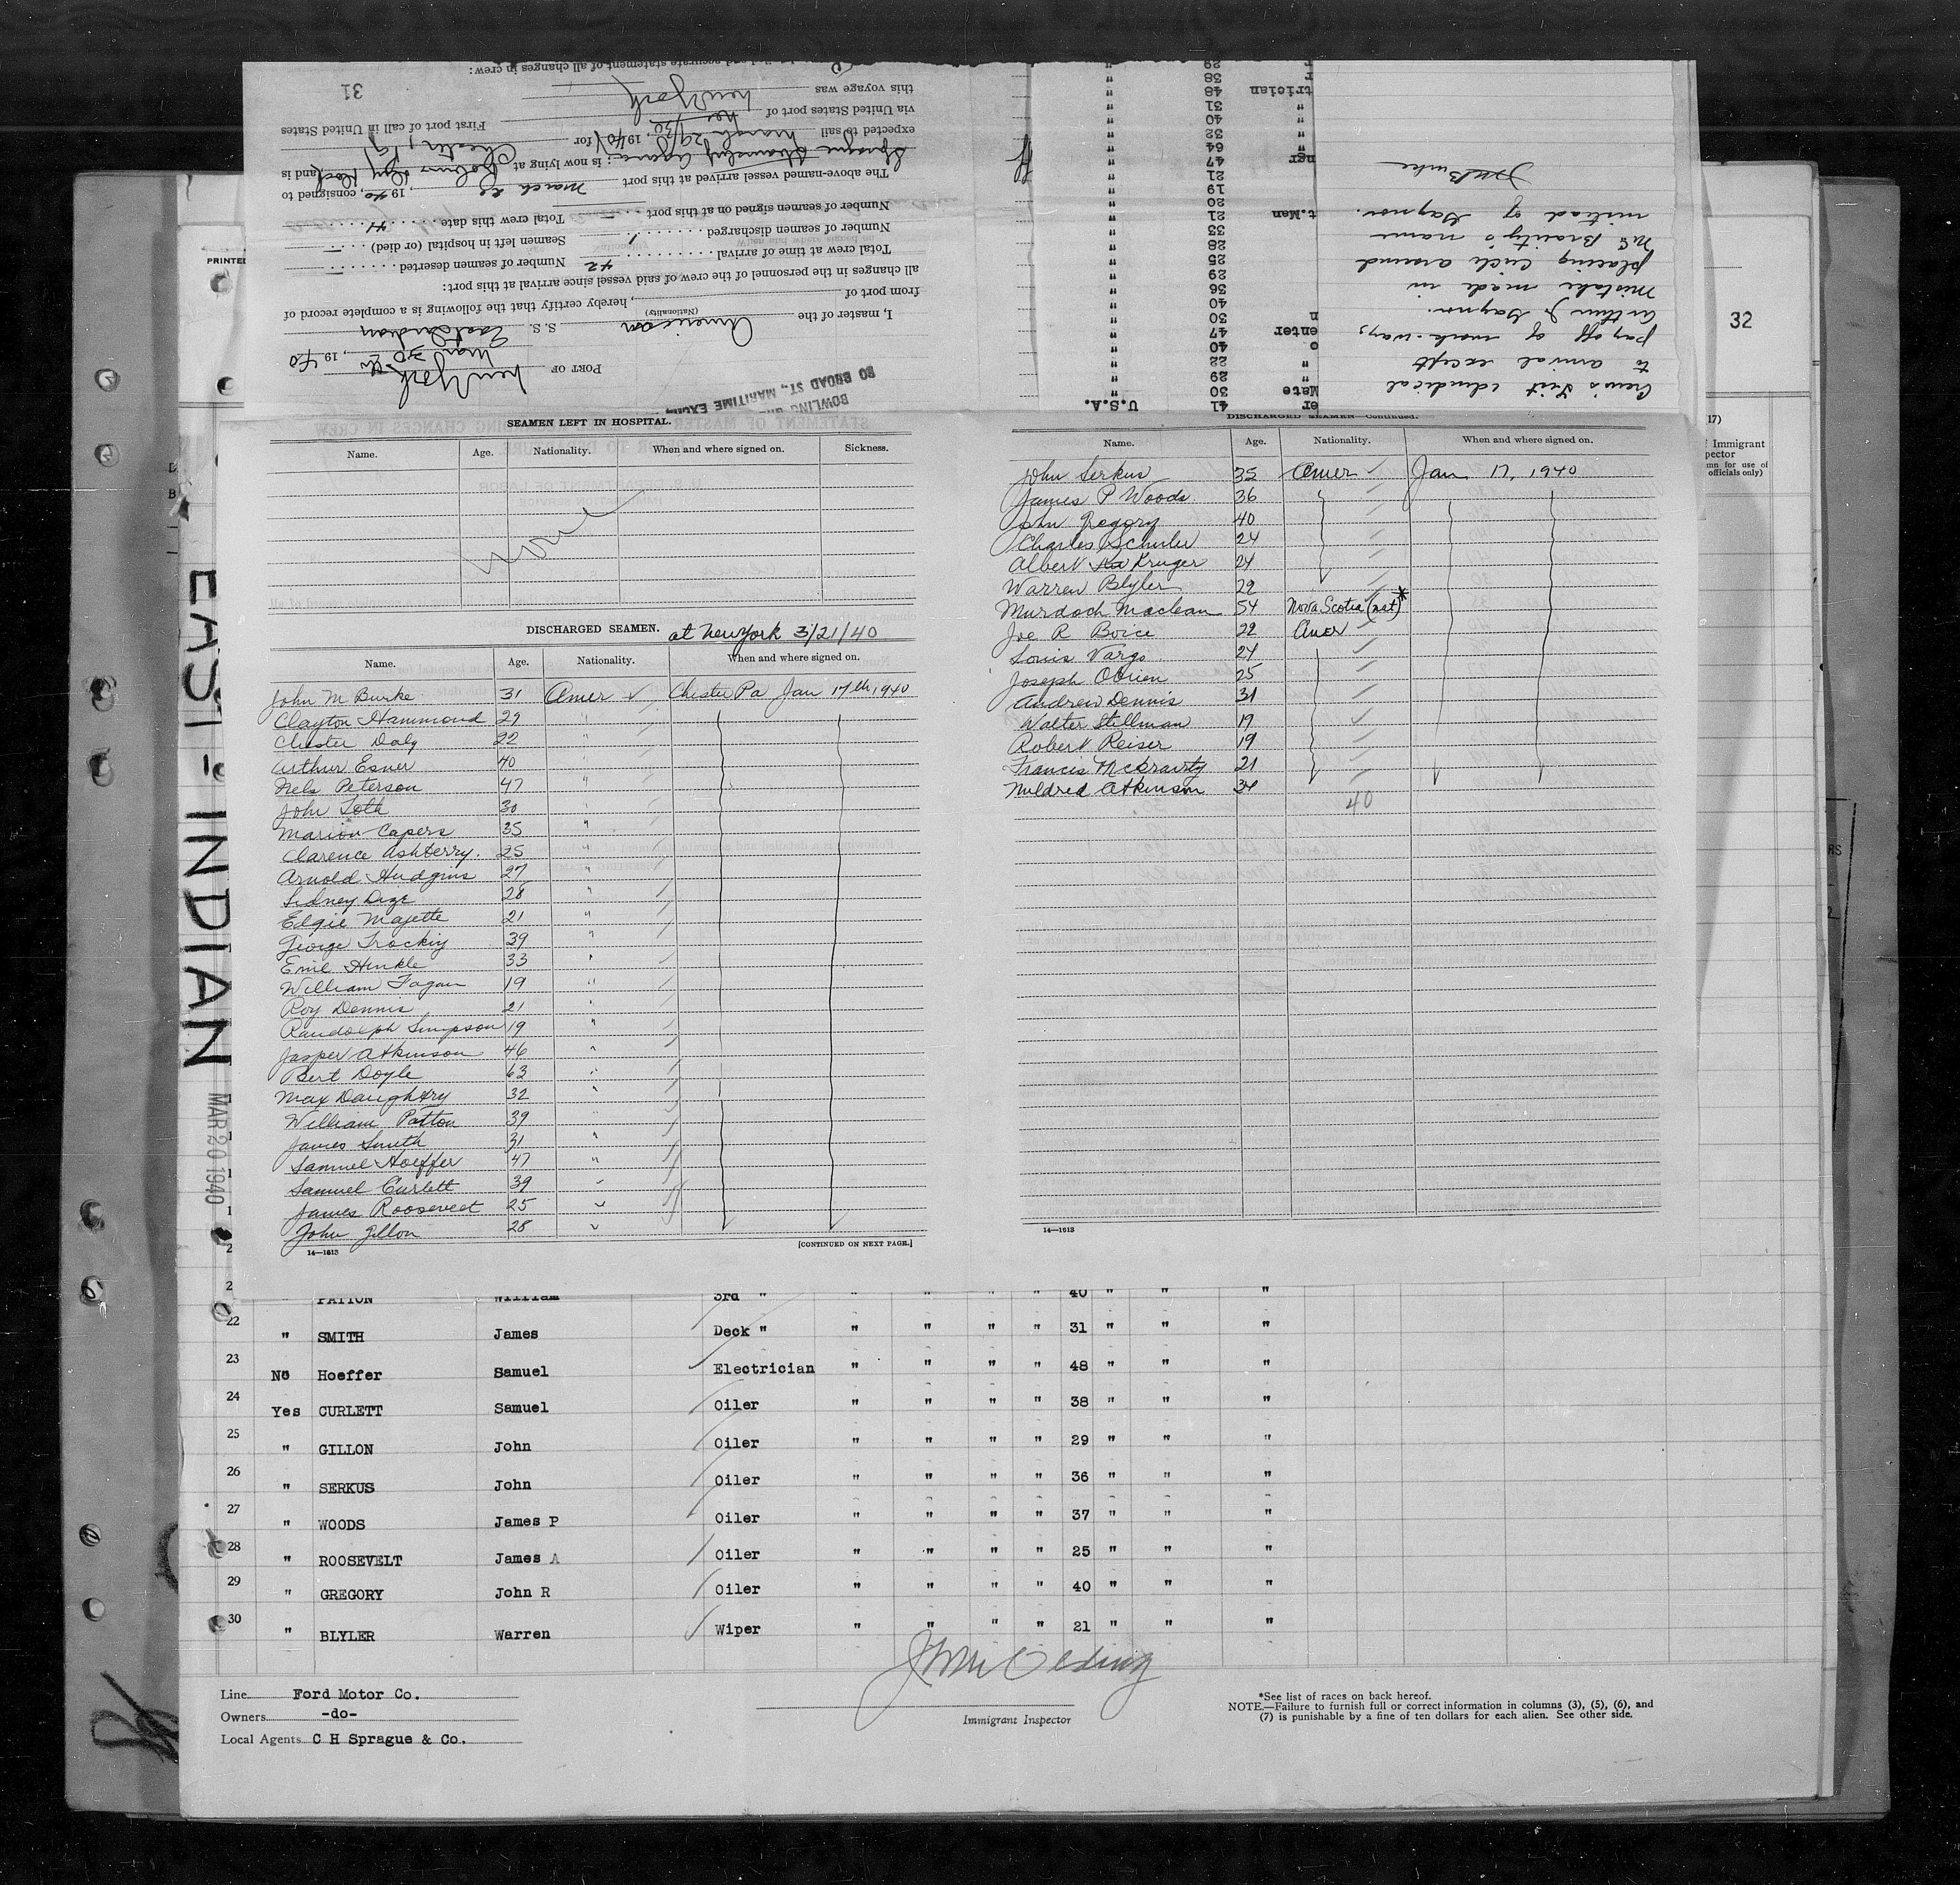 31
this voyage was New York
via United States port of
First port of call in United States
expected to sail March 29/30, 1940, for
Sprague Steamship Agency; is now lying at Chester, Pa and is
The above-named vessel arrived at this port March 20, 1940, consigned to
Number of seamen signed on at this port
Total crew this date 41
Number of seamen discharged 1
Seamen left in hospital (or died)
Total crew at time of arrival 42
Number of seamen deserted
all changes in the personnel of the crew of said vessel since arrival at this port:
from port of , hereby certify that the following is a complete record of
I, master of the American S. S. East Indian
(Nationality)
PORT OF New York Mar 30th, 1940
80 BROAD ST., MARITIME EXCH.
BOWLING
Crew's List identical
to arrival except
pay off of work-way,
Arthur J. Gaynor.
mistake made in
placing circle around
Mc Bravity's name
instead of Gaynor.
JM Burke
er 41 U.S.A.
Mate 30 "
" 29 "
" 22 "
o 40 "
enter 47 "
n 30 "
40 "
36 "
29 "
25 "
28 "
33 "
t.Men 21 "
20 "
19 "
21 "
ngr 47 "
" 64 "
" 32 "
" 40 "
" 31 "
trician 48 "
r 38 "
r 29 "
PRINTED
32
17)
Immigrant
pector
mn for use of
officials only)
EAST-INDIAN
MAR 20 1940
SEAMEN LEFT IN HOSPITAL.
Name. Age. Nationality. When and where signed on. Sickness.
None
DISCHARGED SEAMEN. at New York 3/21/40
Name. Age. Nationality. When and where signed on.
John M Burke 31 Amer Chester Pa Jan 17th, 1940
Clayton Hammond 29 "
Chester Daly 22 "
Arthur Esner 40 "
Nels Peterson 47 "
John Toth 30 "
Marion Capers 35 "
Clarence Ashberry. 25 "
Arnold Hudgins 27 "
Sidney Dize 28 "
Edgie Majette 21 "
George Trockiy 39 "
Emil Hinkle 33 "
William Fagan 19 "
Roy Dennis 21 "
Randolph Simpson 19 "
Jasper Atkinson 46 "
Bert Doyle 63 "
Max Daughtry 32 "
William Patton 39 "
James Smith 31 "
Samuel Hoeffer 47 "
Samuel Curlett 39 "
James Roosevelt 25 "
John Gillon 28 "
14—1613 [CONTINUED ON NEXT PAGE.]
DISCHARGED SEAMEN—Continued.
Name. Age. Nationality. When and where signed on.
John Serkus 35 Amer Jan 17, 1940
James P Woods 36
John Gregory 40
Charles Schuler 24
Albert Kruger 24
Warren Blyler 22
Murdoch Maclean 54 Nova Scotia (nat)*
Joe R Boice 22 Amer
Louis Vargo 24
Joseph OBrien 25
Andrew Dennis 31
Walter Stillman 19
Robert Reiser 19
Francis McBravity 21
Mildred Atkinson 34
40
14—1613
" PATTON William 3rd " " " " " 40 " " "
22 " SMITH James Deck " " " " " 31 " " "
23 No Hoeffer Samuel Electrician " " " " 48 " " "
24 Yes CURLETT Samuel Oiler " " " " 38 " " "
25 " GILLON John Oiler " " " " 29 " " "
26 " SERKUS John Oiler " " " " 36 " " "
27 " WOODS James P Oiler " " " " 37 " " "
28 " ROOSEVELT James A Oiler " " " " 25 " " "
29 " GREGORY John R Oiler " " " " 40 " " "
30 " BLYLER Warren Wiper " " " " 21 " " "
Line Ford Motor Co.
Owners -do-
Local Agents C H Sprague & Co.
Immigrant Inspector
*See list of races on back hereof.
NOTE.—Failure to furnish full or correct information in columns (3), (5), (6), and
(7) is punishable by a fine of ten dollars for each alien. See other side.